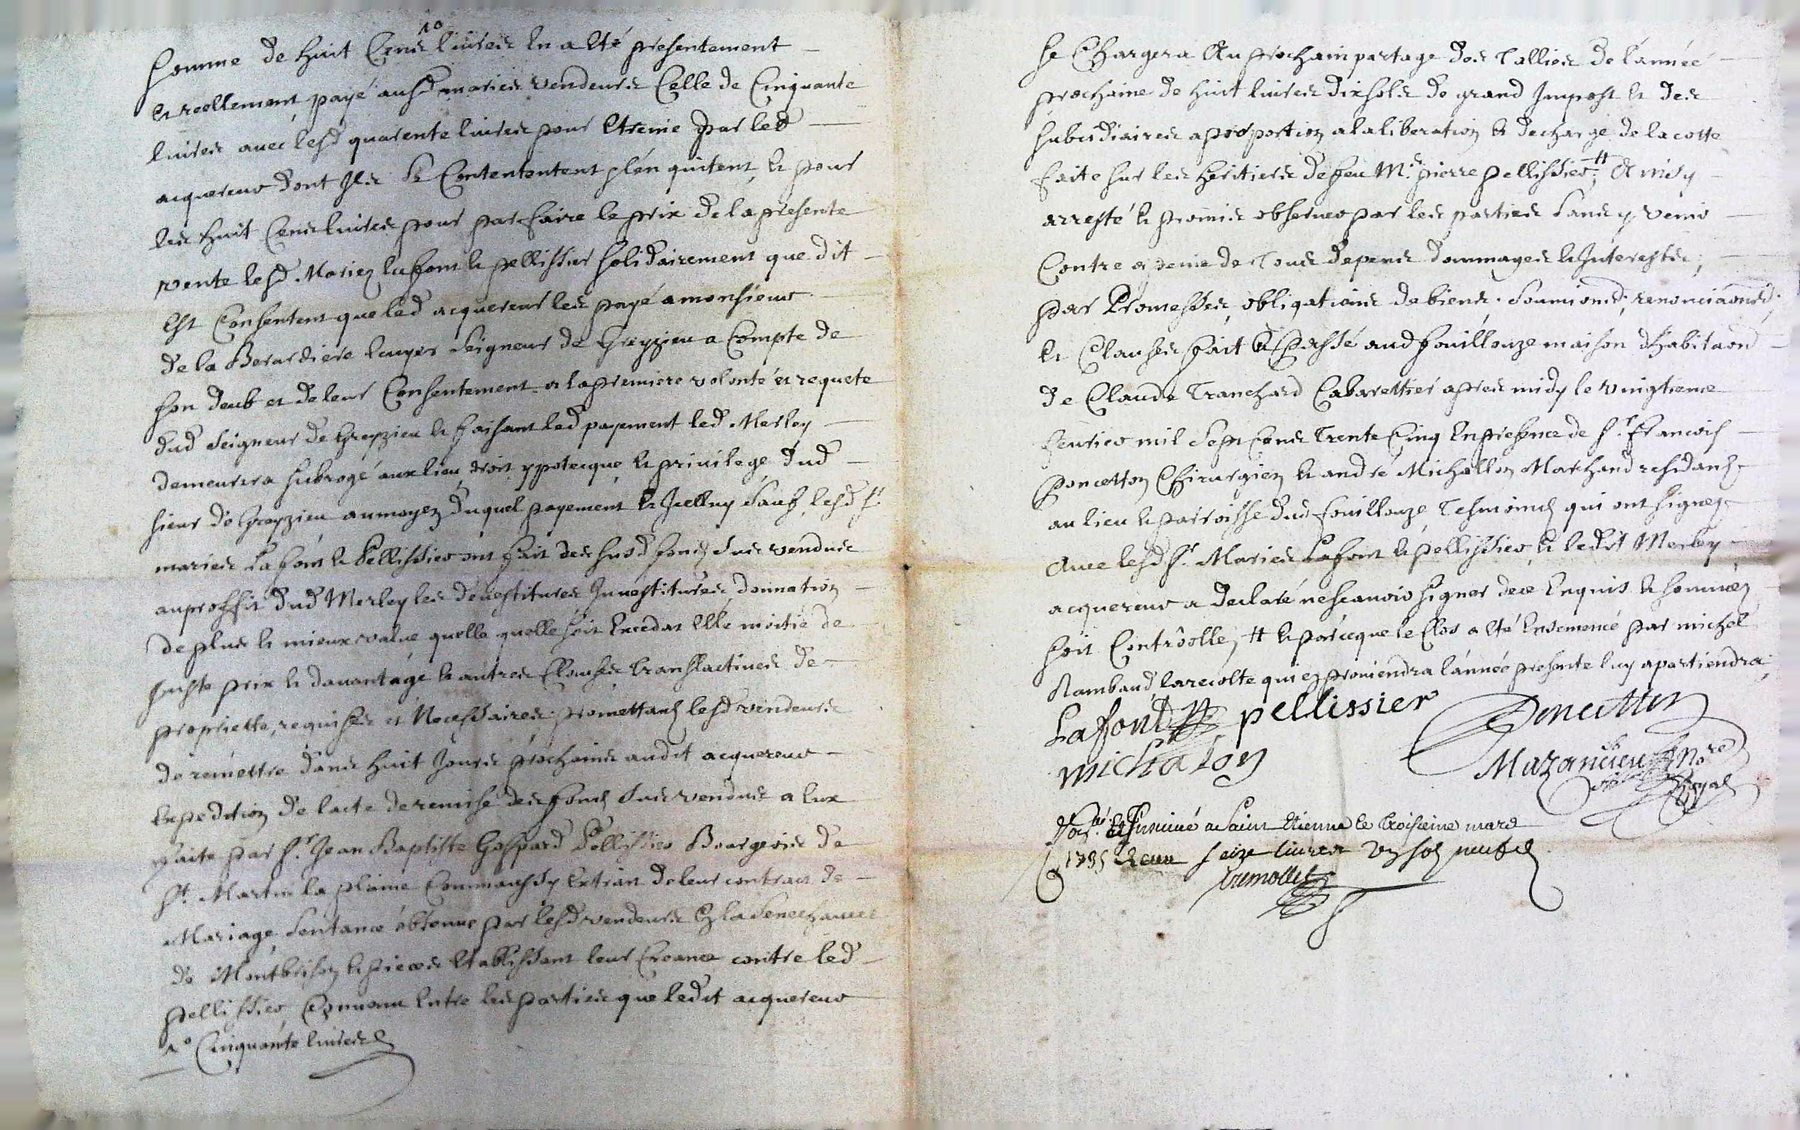 somme de huit Cens 1o livres en a eté presentement
et reellement payé ausd. maries vendeurs Celle de Cinquante
livres avec lesd quarente livres pour etreine par led
acquereur dont Ils se Contententent s'en quitent, et pour
les huit Cens livres pour parfaire le prix de la presente
vente lesd. Mariez Laffont et pellissier solidairement que dit
est Consentent que led acquereur les paye a monsieur
de la Berardiere Ecuyer Seigneur de Grezzieu a Compte de
son deub et de leur Consentement a la premiere volonté et requete
dud Seigneur de Grezzieu et faisant led payement led. Merley
demeurera subrogé aux lieu, droit, ypotecque et privilege dud
sieur de Grezzieu au moyen duquel payement et Icelluy sauf lesd. Sr
maries Lafont et Pellissier ont fait des susd fonds sus vendus
au proffit dud Merley les devestitures Investitures donnation
de plus et mieux value quelle quelle soit Exedat Elle moitié de
juste prix et davantage et autres Clauses translactives de
proprietté, requises et Necessaires promettant lesd vendeurs
de remettre dans huit Jours prochains audit acquereur
Expedition de l'acte de remise des fonds sus vendus a Eux
faite par Sr Jean Baptiste Gaspard Pellissier Bourgeois de
St. Martin la plaine Comme aussy Extrait de leur contract de
Mariage, Sentance obtenue par lesd vendeurs En la Senechaucee
de Montbrison et pieces Etablissant leur Creance contre led
pellissier Convenu Entre les parties que ledit acquereur
1o Cinquante livres
se Chargera Au prochain partage des Tallies de l'année
prochaine de huit livres dix sols de grand Impost et des
subsidiaires a proportion a la liberation et decharge de la cotte
faite sur les heritiers de feu Me. pierre pellissier, # Ainsy
arresté et promis observer par les parties sans y venir
Contre a peine de tous depens dommages et Interestes,
par Promesses, obligations de biens, soumions, renonciaons,
et Clauses fait et Passé aud fouillouze maison d'habitaon
de Claude Tranchard Cabarettier apres midy le vingtieme
fevrier mil sept Cens Trente Cinq En presence de Sr. francois
Poncetton Chirurgien et andre Michallon Marchand residants
au lieu et parroisse dud fouillouze Tesmoins qui ont signez
Avec lesd Sr. Maries Lafont et pellissier et ledit Merley
acquereur a declaré ne scavoir signer de ce Enquis et sommez
soit Controolle, # et parceque le Clos a eté Ensemencé par michel
Rambaud la recolte qui en proviendra l'année presente luy apartiendra,
Lafont pellissier Poncetton
michalon Mazancieu Nore
Royal
et Insinué a Saint Etienne le troisieme mars
1735 Receu seize livres un sol neuf d